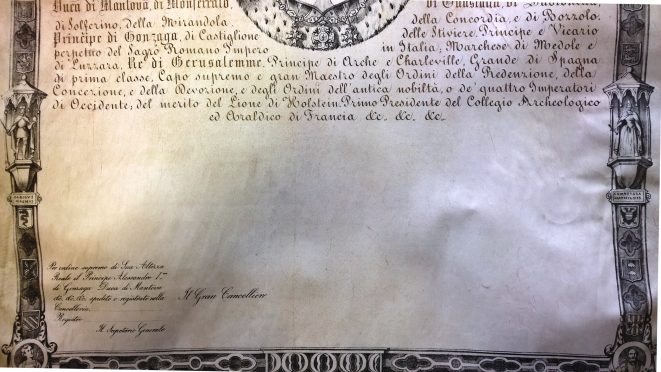 Duca di Mantova, di Monferrato di Guastalla, di
di Solferino, della Mirandola della Concordia, e di Bozzolo.
Principe di Gonzaga, di Castiglione delle Stiviere, Principe e Vicario
perpetuo del Sagro Romano Impero in Italia; Marchese di Medole e
di Luzzara, Re di Gerusalemme, Principe di Arche e Charleville, Grande di Spagna
di prima classe, Capo supremo e gran Maestro degli Ordini della Redenzione, della
Concezione, e della Devozione, e degli Ordini dell'antica nobiltà, o de' quattro Imperatori
di Occidente; del merito del Lione di Holstein, Primo Presidente del Collegio Archeologico
ed Araldico di Francia &c. &c. &c.
CAROLUS
MAGNUS
Per ordine supremo di Sua Altezza
Reale il Principe Alessandro 1.mo
di Gonzaga Duca di Mantova
&c. &c. &c. spedito e registrato nella
Cancelleria.
Registro
Il Segretario Generale
Il Gran Cancelliere